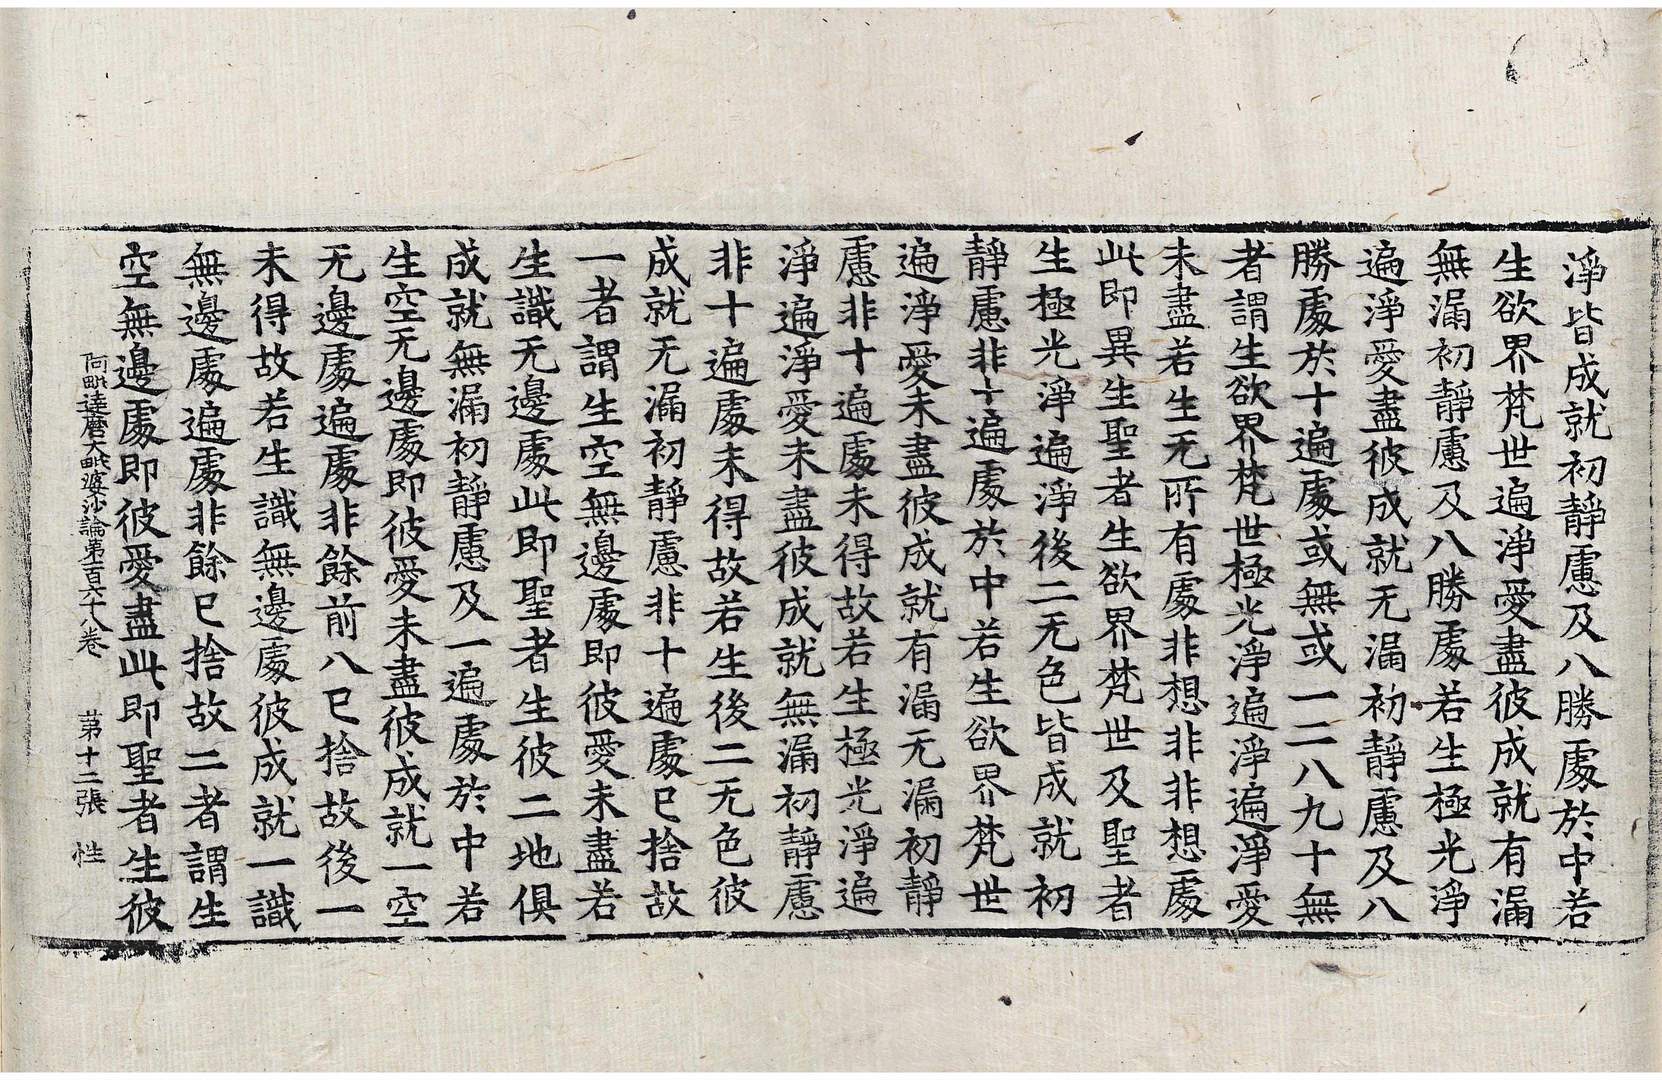 淨皆成就初靜慮及八勝處於中若
生欲界梵世遍淨愛盡彼成就有漏
無漏初靜慮及八勝處若生極光淨
遍淨愛盡彼成就无漏初靜慮及八
勝處於十遍處或無或一二八九十無
者謂生欲界梵世極光淨遍淨遍淨愛
未盡若生无所有處非想非非想處
此即異生聖者生欲界梵世及聖者
生極光淨遍淨後二无色皆成就初
靜慮非十遍處於中若生欲界梵世
遍淨愛未盡彼成就有漏无漏初靜
慮非十遍處未得故若生極光淨遍
淨遍淨愛未盡彼成就無漏初靜慮
非十遍處未得故若生後二无色彼
成就无漏初靜慮非十遍處已捨故
一者謂生空無邊處即彼愛未盡若
生識无邊處此即聖者生彼二地俱
成就無漏初靜慮及一遍處於中若
生空无邊處即彼愛未盡彼成就一空
无邊處遍處非餘前八已捨故後一
未得故若生識無邊處彼成就一識
無邊處遍處非餘已捨故二者謂生
空無邊處即彼愛盡此即聖者生彼
阿毗達磨大毗婆沙論第一百六十八卷 第十二張 性